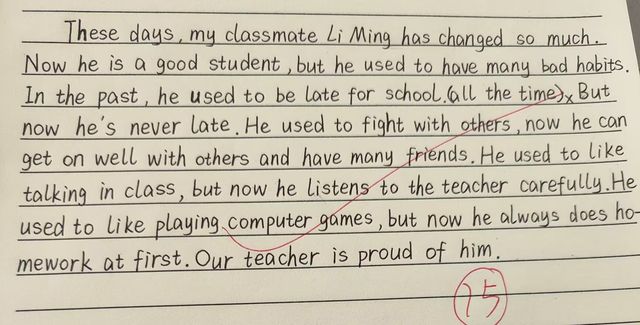 These days, my classmate Li Ming has changed so much.
Now he is a good student, but he used to have many bad habits.
In the past, he used to be late for school.(all the time)x But
now he's never late. He used to fight with others, now he can
get on well with others and have many friends. He used to like
talking in class, but now he listens to the teacher carefully. He
used to like playing computer games, but now he always does ho-
mework at first. Our teacher is proud of him.
15